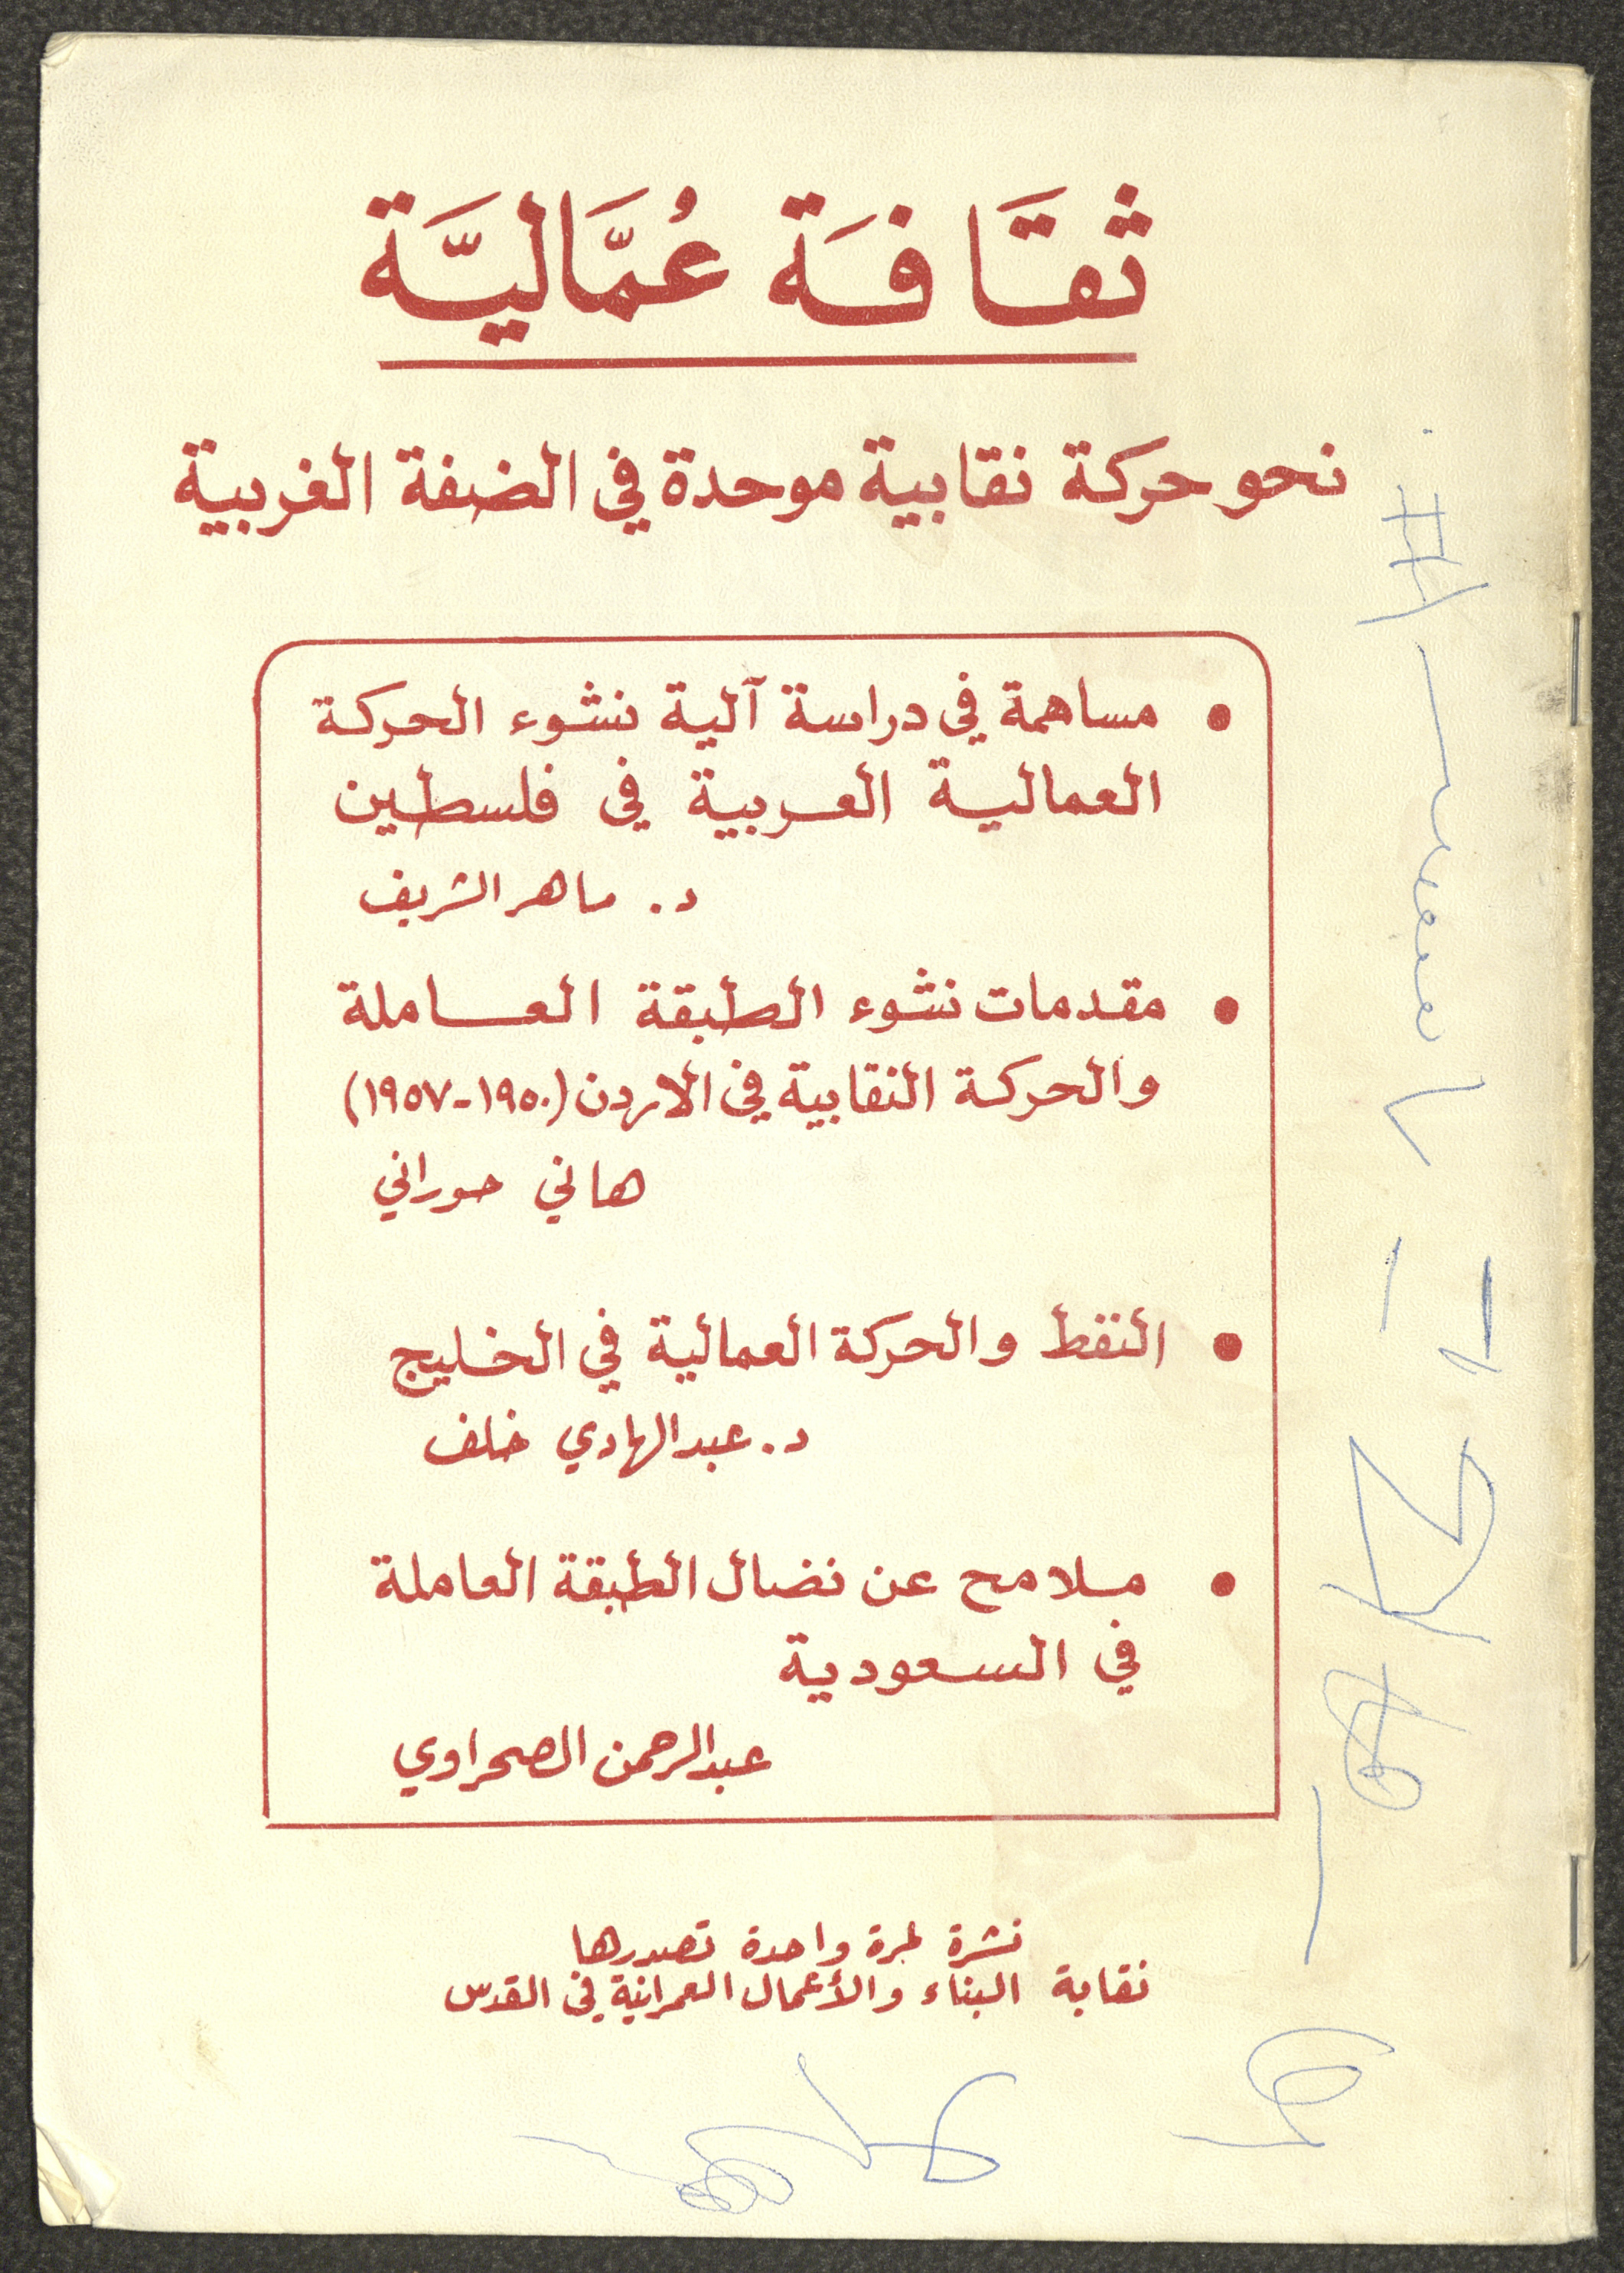 ثقَافَة عُمَّاليَّة
نحو حركة نقابية موحدة في الضفة الغربية
• مساهمة في دراسة آلية نشوء الحركة
العمالية العربية في فلسطين
د. ماهر الشريف
• مقدمات نشوء الطبقة العاملة
والحركة النقابية في الاردن (١٩٥٠-١٩٥٧)
هاني حوراني
• النفط والحركة العمالية في الخليج
د. عبدالهادي خلف
• ملامح عن نضال الطبقة العاملة
في السعودية
عبدالرحمن الصحراوي
نشرة لمرة واحدة تصدرها
نقابة البناء والأعمال العمرانية في القدس